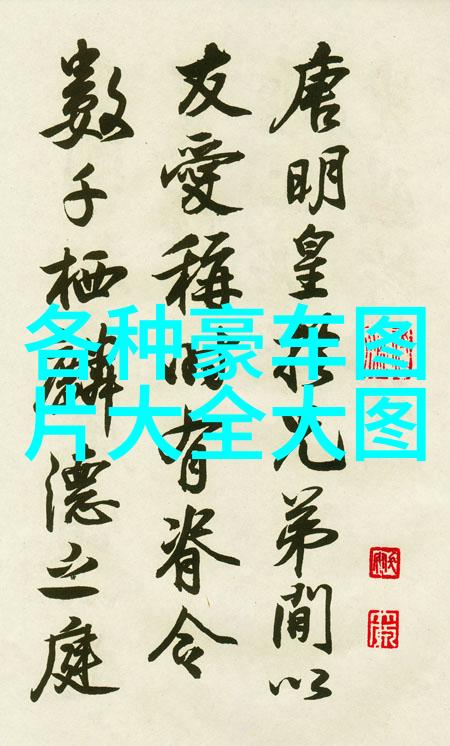 唐明皇扵兄弟間以
友愛稱時有脊令
數千栖麟德之庭
各种豪车图
片大全大图